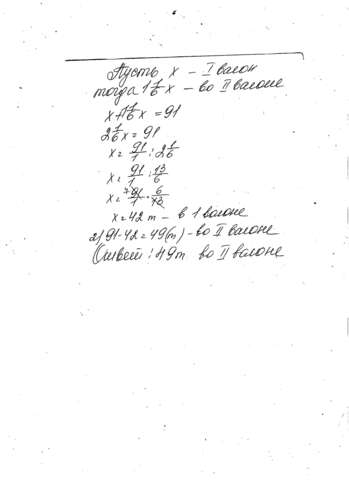 Пусть x - I вагон
тогда 1 1/6 x - во II вагоне
x+1 1/6 x = 91
2 1/6 x = 91
x = 91/1 : 2 1/6
x = 91/1 : 13/6
x = 7 91/1 · 6/13
x = 42 т - в 1 вагоне
2) 91-42 = 49(т) - во II вагоне
Ответ: 49т во II вагоне